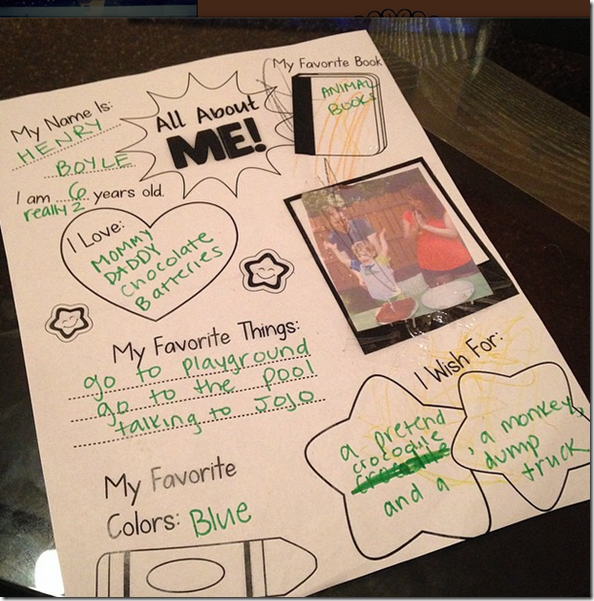 My Favorite Book
ANIMAL
BOOKS
All About
ME!
My Name Is:
HENRY
BOYLE
I am 6 years old.
really 2
I Love:
MOMMY
DADDY
Chocolate
Batteries
My Favorite Things:
go to playground
go to the pool
talking to JoJo
I Wish For:
a pretend
crocodile
and a
, a monkey,
dump
truck
My Favorite
Colors: Blue